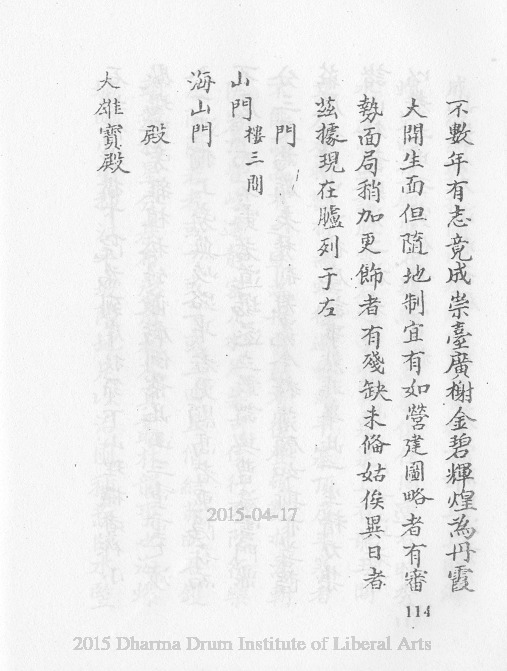 不數年有志竟成崇臺廣榭金碧輝煌為丹霞
大開生面但隨地制宜有如營建圖略者有審
勢面局稍加更飾者有殘缺未俻姑俟異日者
茲據現在臚列于左
門
山門樓三間
海山門
殿
大雄寶殿
114
2015-04-17
2015 Dharma Drum Institute of Liberal Arts